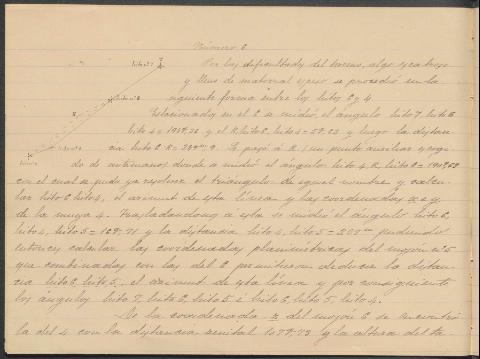 Número 6
hito 7
Por las dificultades del terreno, algo escabroso
y lleno de matorral espeso se procedió en la
siguiente forma entre los hitos 6 y 4.
Estacionados en el 6 se midió el ángulo hito 7, hito 6
hito 4 = y el R, hito 6, hito 4 = y luego la distan-
cia hito 6 R = Se pasó á R (un punto auxiliar rodea-
do de donde se midió el ángulo hito 4 R hito 6 =
con el cual se pudo ya resolver el triángulo de igual nombre y calcu-
lar hito 6 hito 4, el azimut de esta línea y las coordenadas x e y
de la muga 4. Trasladándonos a esta se midió el ángulo hito 6,
hito 4, hito 5 = y la distancia hito 4, hito 5 = pudiendo
entonces calcular las coordenadas planimétricas del mojón nº 5
que combinadas con las del 6 permitieron deducir la distan-
cia hito 6, hito 5, el azimut de esta línea y por consiguiente
los ángulos hito 7, hito 6, hito 5 é hito 6, hito 5, hito 4.
De la coordenada z del mojón 6 se encuentra
la del 4 con la distancia zenital y la altura del ta-